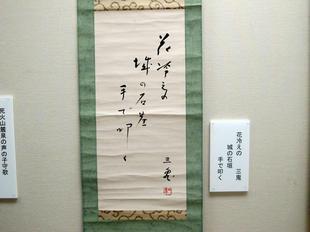 花冷えの
城の石垣
手で叩く
三鬼
花冷えの 三鬼
城の石垣
手で叩く
死火山麓泉の声の子守歌